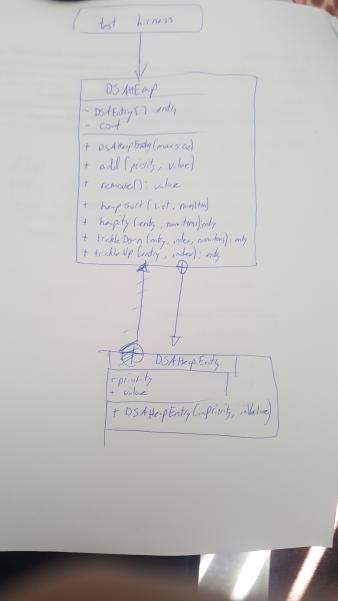 test harness
DSAHEap
- DSAEntry[] entry
- cont
+ DSAHeapEntry(maxsize)
+ add(priority, value)
+ remove(): value
+ heapSort(list, numItems)
+ heapify(entry, numitems):entry
+ trickleDown(entry, index, numitems): entry
+ trickleUp(entry, index): entry
DSAHeapEntry
+ priority
+ value
+ DSAHeapEntry(inpriority, inValue)